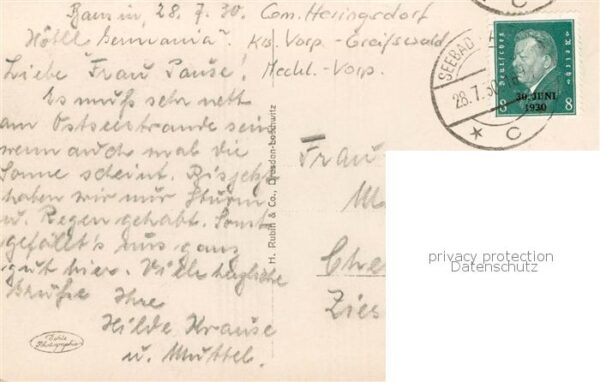 Bansin, 28.7.30. Gem. Heringsdorf
Hotel Germania. Krs. Vorp - Greifswald
Meckl.-Vorp.
Liebe Frau Pause!
Es muß sehr nett
am Ostseestrande sein
wenn auch mal die
Sonne scheint. Bis jetzt
haben wir nur Sturm
u. Regen gehabt. Sonst
gefällt's uns ganz
gut hier. Viele herzliche
Grüße Ihre
Hilde Krause
u. Muttel.
H. Rubin & Co., Dresden-Loschwitz
Echte Photographie
Frau
M
Che
Zies
SEEBAD
28.7.30
* C
C
Deutsches Reich
30. JUNI
1930
8 8
privacy protection
Datenschutz